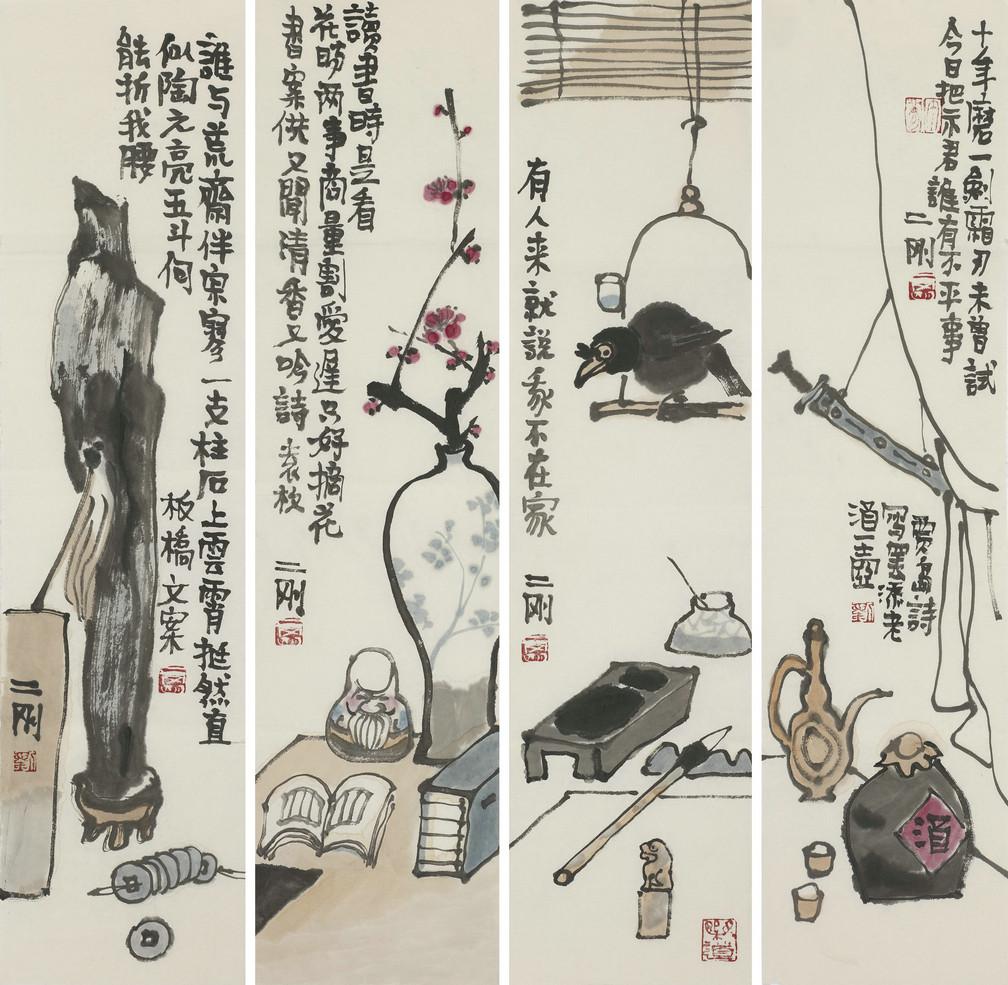 十年磨一劍霜刃未曾試
今日把示君誰有不平事
二刚
賈島詩
写罢添老
酒一壺
酒
有人来就説我不在家
二刚
讀書時是看
花時两事商量割愛遲只好摘花
書案供又聞清香又吟詩 袁枚
二刚
誰与荒齋伴寂寥一支柱石上雲霄挺然直
似陶元亮五斗何
能折我腰
板橋文案
二刚